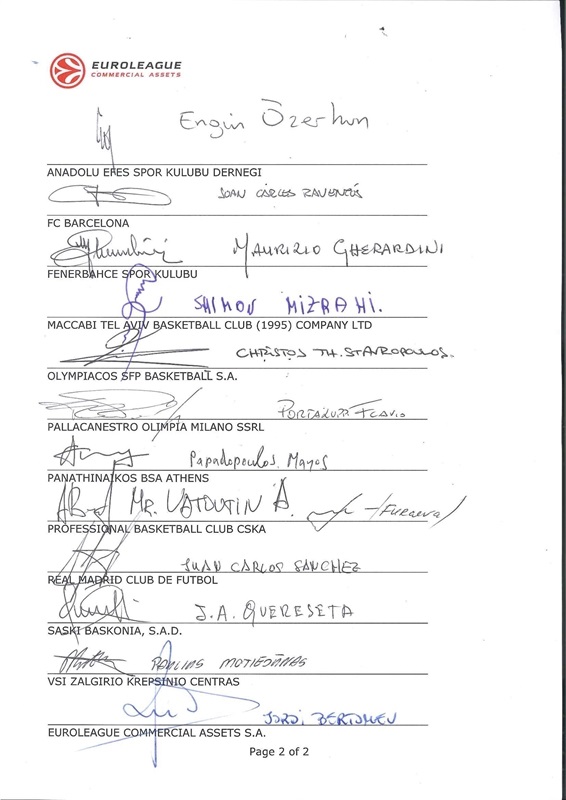 EUROLEAGUE
COMMERCIAL ASSETS
Engin Özerhun
ANADOLU EFES SPOR KULUBU DERNEGI
JOAN CARLES RAVENTÓS
FC BARCELONA
MAURIZIO GHERARDINI
FENERBAHCE SPOR KULUBU
SHIMON MIZRAHI.
MACCABI TEL AVIV BASKETBALL CLUB (1995) COMPANY LTD
CHRISTOS TH. STAVROPOULOS.
OLYMPIACOS SFP BASKETBALL S.A.
FLAVIO
PALLACANESTRO OLIMPIA MILANO SSRL
Papadopoulos Mayos
PANATHINAIKOS BSA ATHENS
MR. VATUTIN A.
PROFESSIONAL BASKETBALL CLUB CSKA
JUAN CARLOS SANCHEZ
REAL MADRID CLUB DE FUTBOL
J.A. QUEREJETA
SASKI BASKONIA, S.A.D.
PAULIUS MOTIEJUNAS
VSI ZALGIRIO KREPSINIO CENTRAS
JORDI BERTOMEU
EUROLEAGUE COMMERCIAL ASSETS S.A.
Page 2 of 2